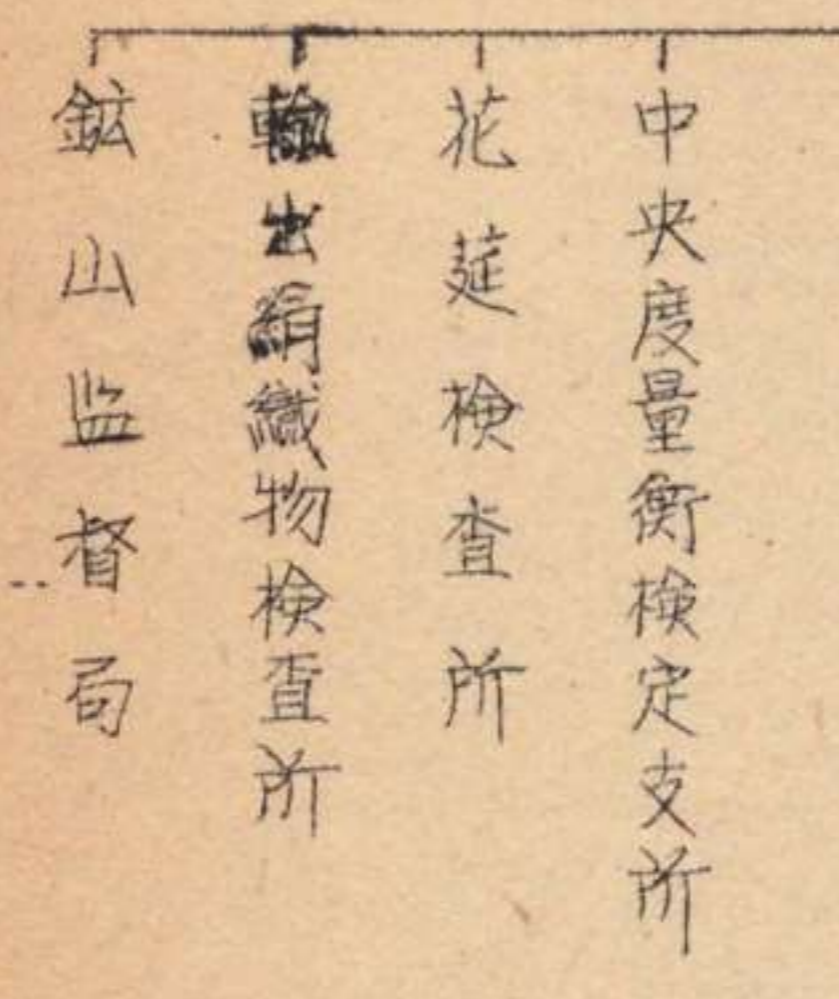 中央度量衡検定支所
花莚検査所
輸出絹織物検査所
鉱山监督局